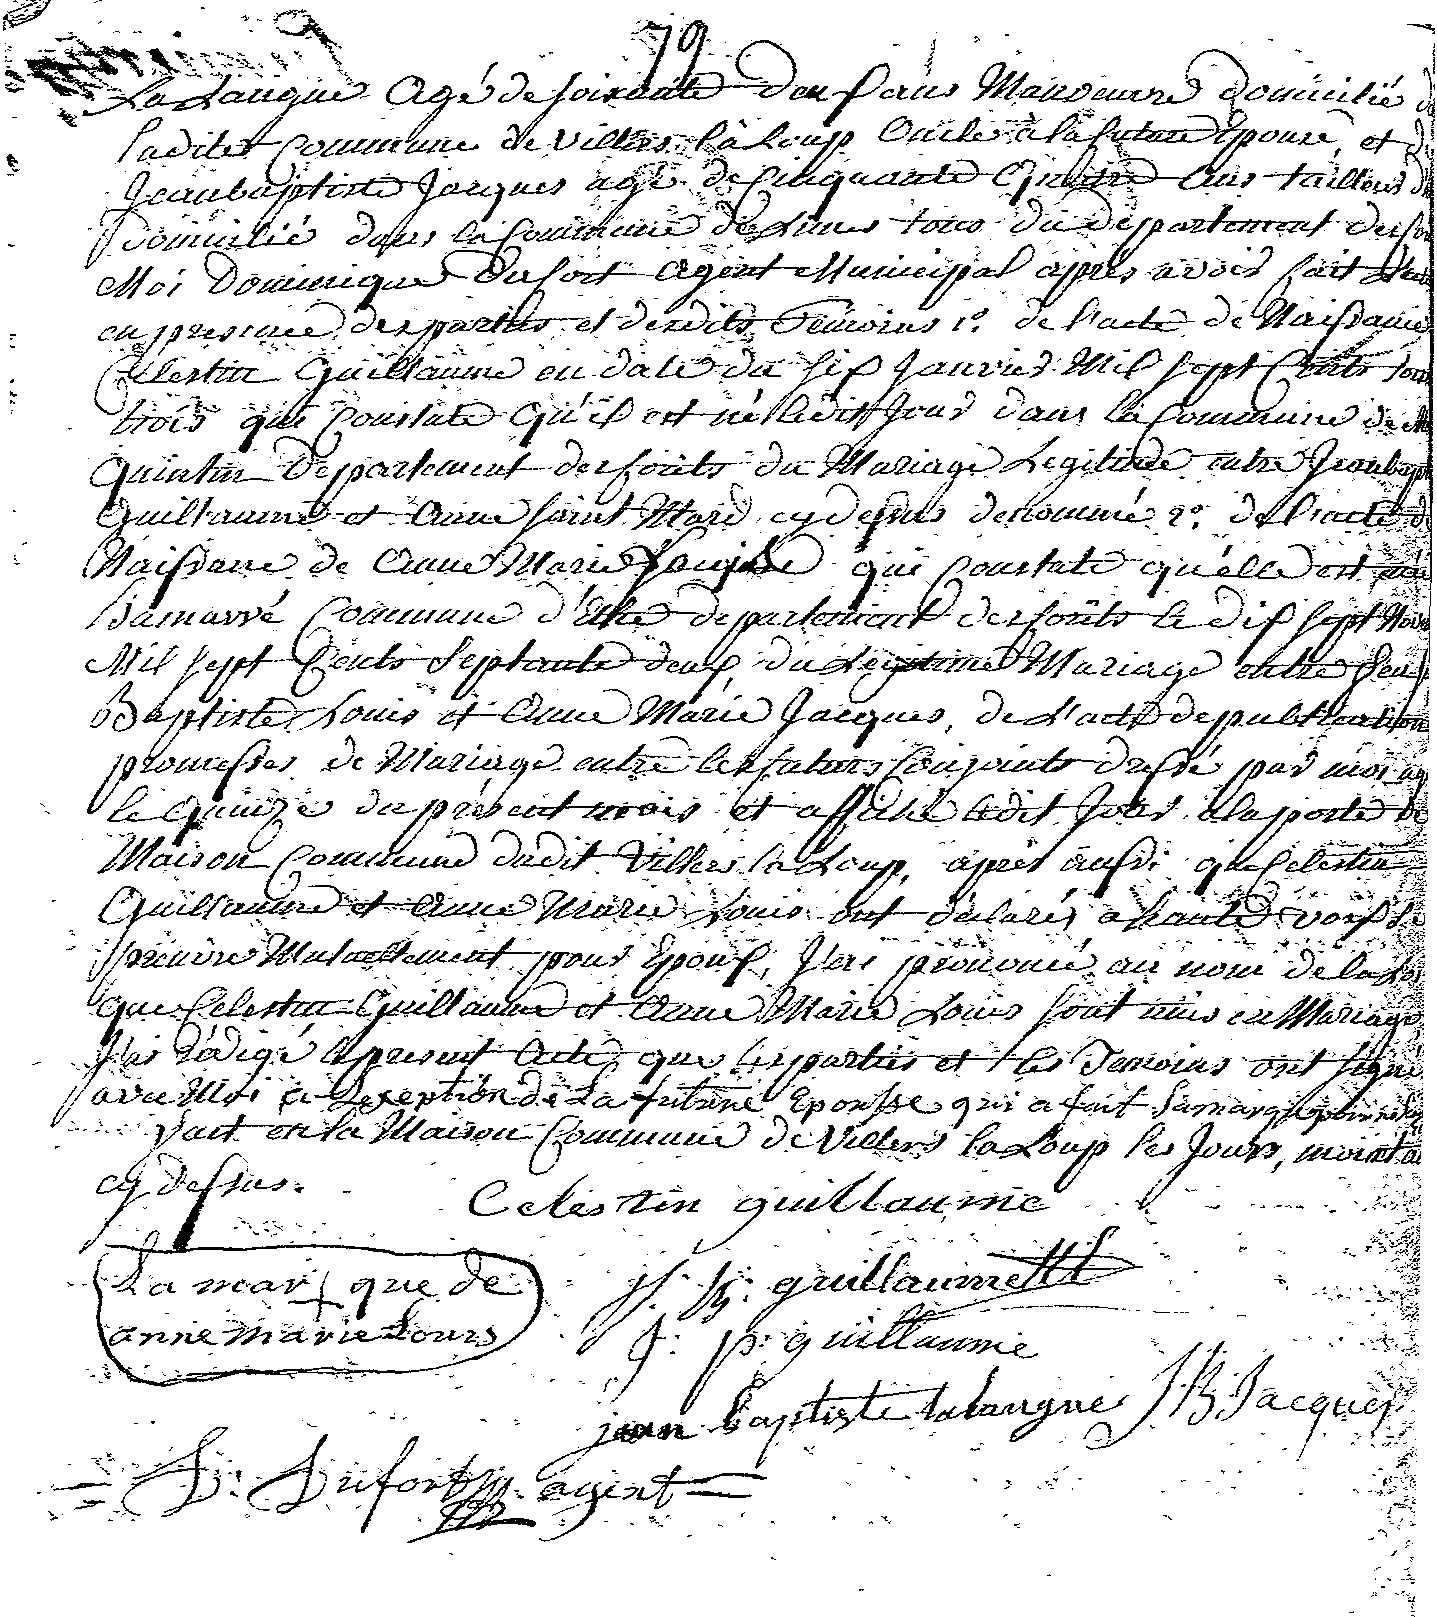 79
LaLangue Agé de soixante deux ans Manoeuvre domicilié d
ladite Commune de Villers la Loup Oncle à la future Epouse, et d
Jeanbaptiste Jacques agé de Cinquante Quatre ans tailleur d
domicilié dans la Commune de tous du département des fo
Moi Dominique Dufort Agent Municipal après avoir fait
en presence des parties et desdits Témoins 1º. de l'acte de Naissance
Celestin Guillaume en date du six Janvier Mil sept Cents
trois qui Constate Qu'il est né ledit Jour dans la Commune de
Quintin Département des forêts du Mariage Legitime entre Jeanbap
Guillaume et Anne saint Mard cy dessus denommé 2º. de l'acte d
Naissance de Anne Marie qui Constate qu'elle est née
hamarré Commune d'Ethe departement des forêts le dix sept Nov
Mil sept Cents Septante deux, du Legitime Mariage entre
Baptiste Louis et Anne Marie Jacques, de L'acte de publication
promesses de Mariage entre les futurs Conjoints dressé par moi ag
le Quinze du présent mois et affiché ledit Jour a la porte de
Maison Commune dudit Villers la Loup, après aussi que Celestin
Guillaume et Anne Marie Louis ont déclarés a haute voix se
prendre Mutuellement pour Epoux, J'ai prononcé au nom de la Loi
que Celestin Guillaume et Anne Marie Louis sont unis en Mariage
J'ai rédigé le present Acte que les parties et les Temoins ont signé
avec Moi a Lexception de La future Epousse qui a fait sa marque
Fait en la Maison Commune de Villers la Loup les Jours, mois et a
cy dessus.
Celestin guillaume
La mar+que de
anne marie Louis
J. B. guillaume
J: p: guillaume
jean baptiste lalangue JB Jacques
D. Dufort agent